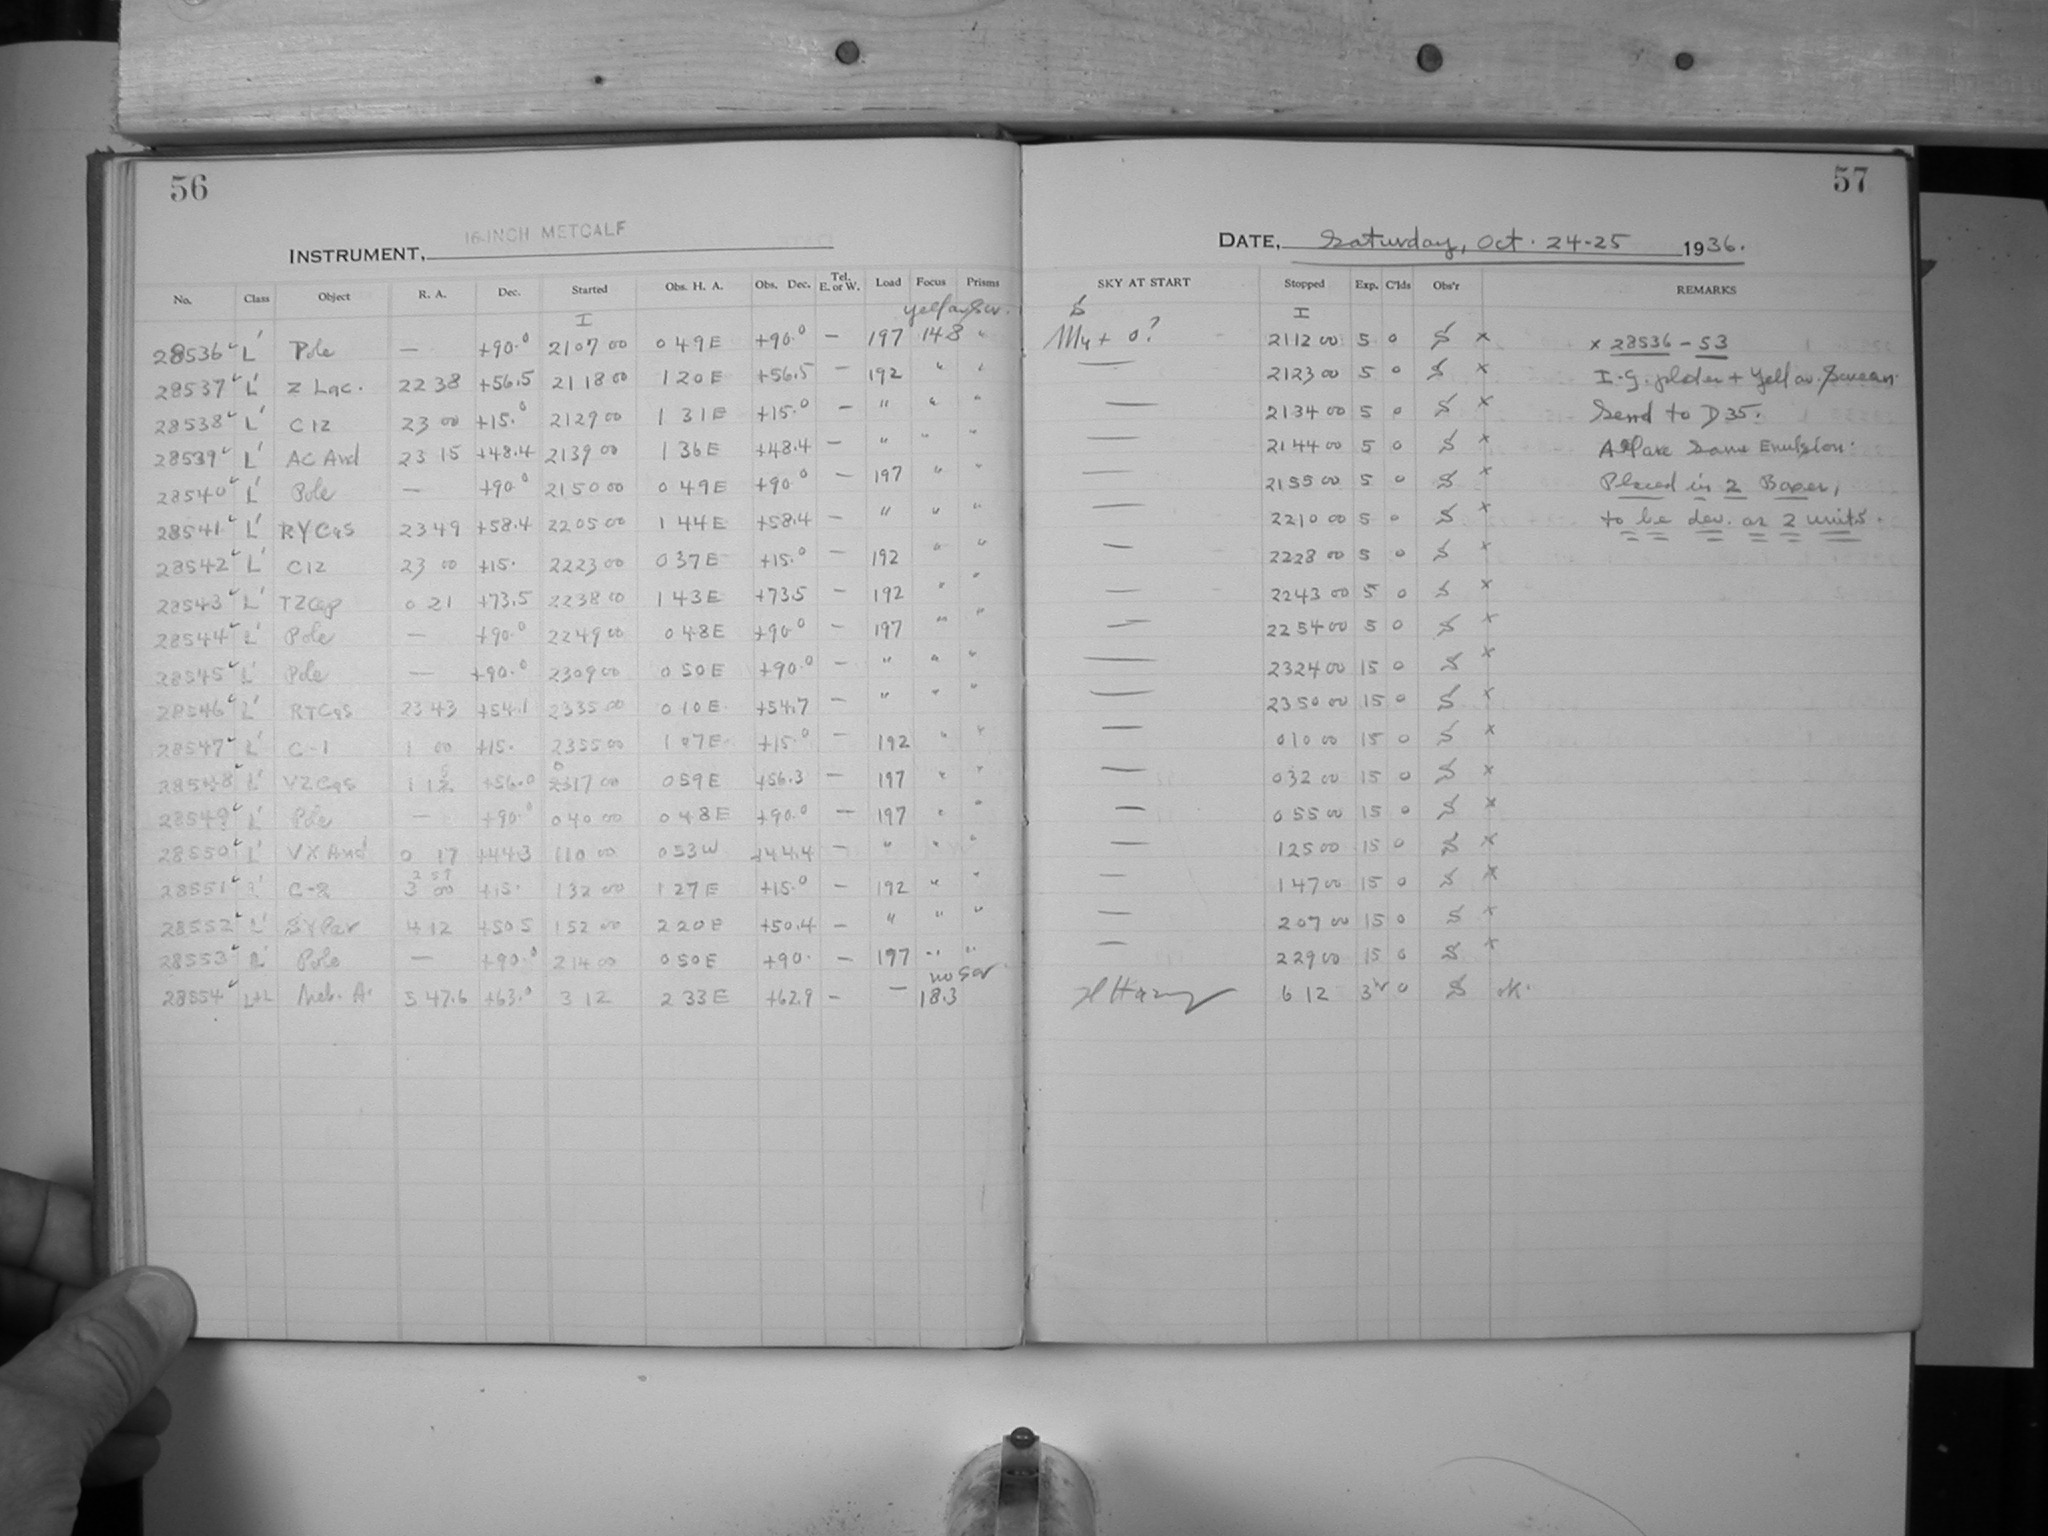 56
INSTRUMENT, 16-INCH METCALF
No. Class Object R. A. Dec. Started Obs. H. A. Obs. Dec. Tel. E. or W. Load Focus Prisms
I
28536 L' Pole — +90.0 2107 00 0 49 E +90.0 — 197 14.8 "
28537 L' Z Lac. 22 38 +56.5 2118 00 1 20 E +56.5 — 192 " "
28538 L' C12 23 00 +15.0 2129 00 1 31 E +15.0 — " " "
28539 L' AC And 23 15 +48.4 2139 00 1 36 E +48.4 — " " "
28540 L' Pole — +90.0 2150 00 0 49 E +90.0 — 197 " "
28541 L' RY Cas 23 49 +58.4 2205 00 1 44 E +58.4 — " " "
28542 L' C12 23 00 +15. 2223 00 0 37 E +15.0 — 192 " "
28543 L' TZ Cep 0 21 +73.5 2238 00 1 43 E +73.5 — 192 " "
28544 L' Pole — +90.0 2249 00 0 48 E +90.0 — 197 " "
28545 L' Pole — +90.0 2309 00 0 50 E +90.0 — " " "
28546 L' Cas 23 43 +54.1 2335 00 0 10 E +54.7 — " " "
28547 L' C-1 1 00 +15. 2355 00 1 07 E +15.0 — 192 " "
28548 L' VZ Cas 1 +56.0 17 00 0 59 E +56.3 — 197 " "
28549 L' Pole — +90.0 0 40 00 0 48 E +90.0 — 197 " "
28550 L' VX And 0 17 +44.3 1 10 00 0 53 W +44.4 — " " "
28551 L' C-2 3 00 +15. 1 32 00 1 27 E +15.0 — 192 " "
28552 L' SY Per 4 12 +50.5 1 52 00 2 20 E +50.4 — " " "
28553 L' Pole — +90.0 2 14 00 0 50 E +90. — 197 " "
no scr
28554 L+L Neb. A. 5 47.6 +63.0 3 12 2 33 E +62.9 — — 18.3
57
DATE, Saturday, Oct. 24-25 1936.
SKY AT START Stopped Exp. C'lds Obs'r REMARKS
I
2112 00 5 0 S x x 28536 - 53
— 2123 00 5 0 S x I.G. plates + Yellow Screen.
— 2134 00 5 0 S x Send to D35.
— 2144 00 5 0 S x All are same Emulsion.
— 2155 00 5 0 S x Placed in 2 Boxes,
— 2210 00 5 0 S x to be dev. as 2 units.
— 2228 00 5 0 S x
— 2243 00 5 0 S x
— 2254 00 5 0 S x
— 2324 00 15 0 S x
— 2350 00 15 0 S x
— 0 10 00 15 0 S x
— 0 32 00 15 0 S x
— 0 55 00 15 0 S x
— 1 25 00 15 0 S x
— 1 47 00 15 0 S x
— 2 07 00 15 0 S x
— 2 29 00 15 0 S x
6 12 0 S ok.